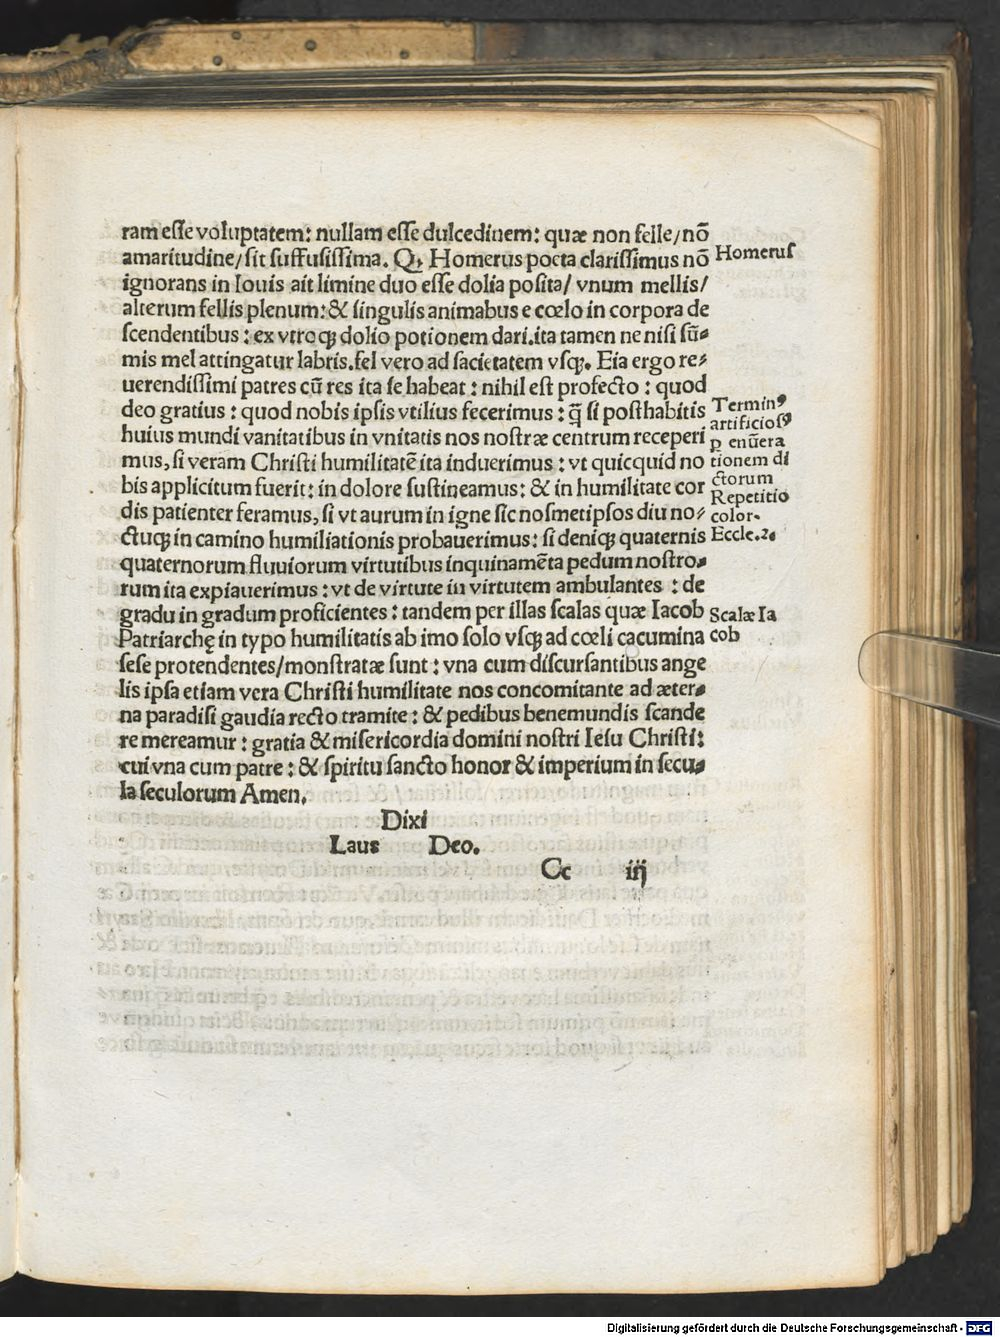 ram esſe voluptatem: nullam esſe dulcedinem: quæ non felle/nõ
amaritudine/ſit ſuffuſisſima. Qꝫ Homerus poeta clarisſimus nõ
Homerus
ignorans in Iouis ait limine duo esſe dolia poſita/ vnum mellis/
alterum fellis plenum: & ſingulis animabus e cœlo in corpora de
ſcendentibus: ex vtroqꝫ dolio potionem dari.ita tamen ne niſi ſũ⸗
mis mel attingatur labris.fel vero ad ſacietatem vſqꝫ. Eia ergo re⸗
uerendisſimi patres cũ res ita ſe habeat: nihil est profecto: quod
deo gratius: quod nobis ipſis vtilius fecerimus: q̃ ſi posthabitis
Terminꝰ
artificioſꝰ
huius mundi vanitatibus in vnitatis nos nostræ centrum receperi
ꝑ enũera
mus, ſi veram Christi humilitatẽ ita induerimus: vt quicquid no
tionem di
ctorum
bis applicitum fuerit: in dolore ſustineamus: & in humilitate cor
Repetitio
dis patienter feramus, ſi vt aurum in igne ſic noſmetipſos diu no⸗
color.
ctuqꝫ in camino humiliationis probauerimus: ſi deniqꝫ quaternis
Eccle.2.
quaternorum fluuiorum virtutibus inquinamẽta pedum nostro⸗
rum ita expiauerimus: vt de virtute in virtutem ambulantes : de
gradu in gradum proficientes: tandem per illas ſcalas quæ Iacob
Scalæ Ia
Patriarchę in typo humilitatis ab imo ſolo vſqꝫ ad cœli cacumina
cob
ſeſe protendentes/monstratæ ſunt: vna cum diſcurſantibus ange
lis ipſa etiam vera Christi humilitate nos concomitante ad æter⸗
na paradiſi gaudia recto tramite: & pedibus benemundis ſcande
re mereamur: gratia & miſericordia domini nostri Ieſu Christi:
cui vna cum patre: & ſpiritu ſancto honor & imperium in ſecu⸗
la ſeculorum Amen.
Dixi
Laus Deo.
Cc iij
Digitalisierung gefördert durch die Deutsche Forschungsgemeinschaft - DFG